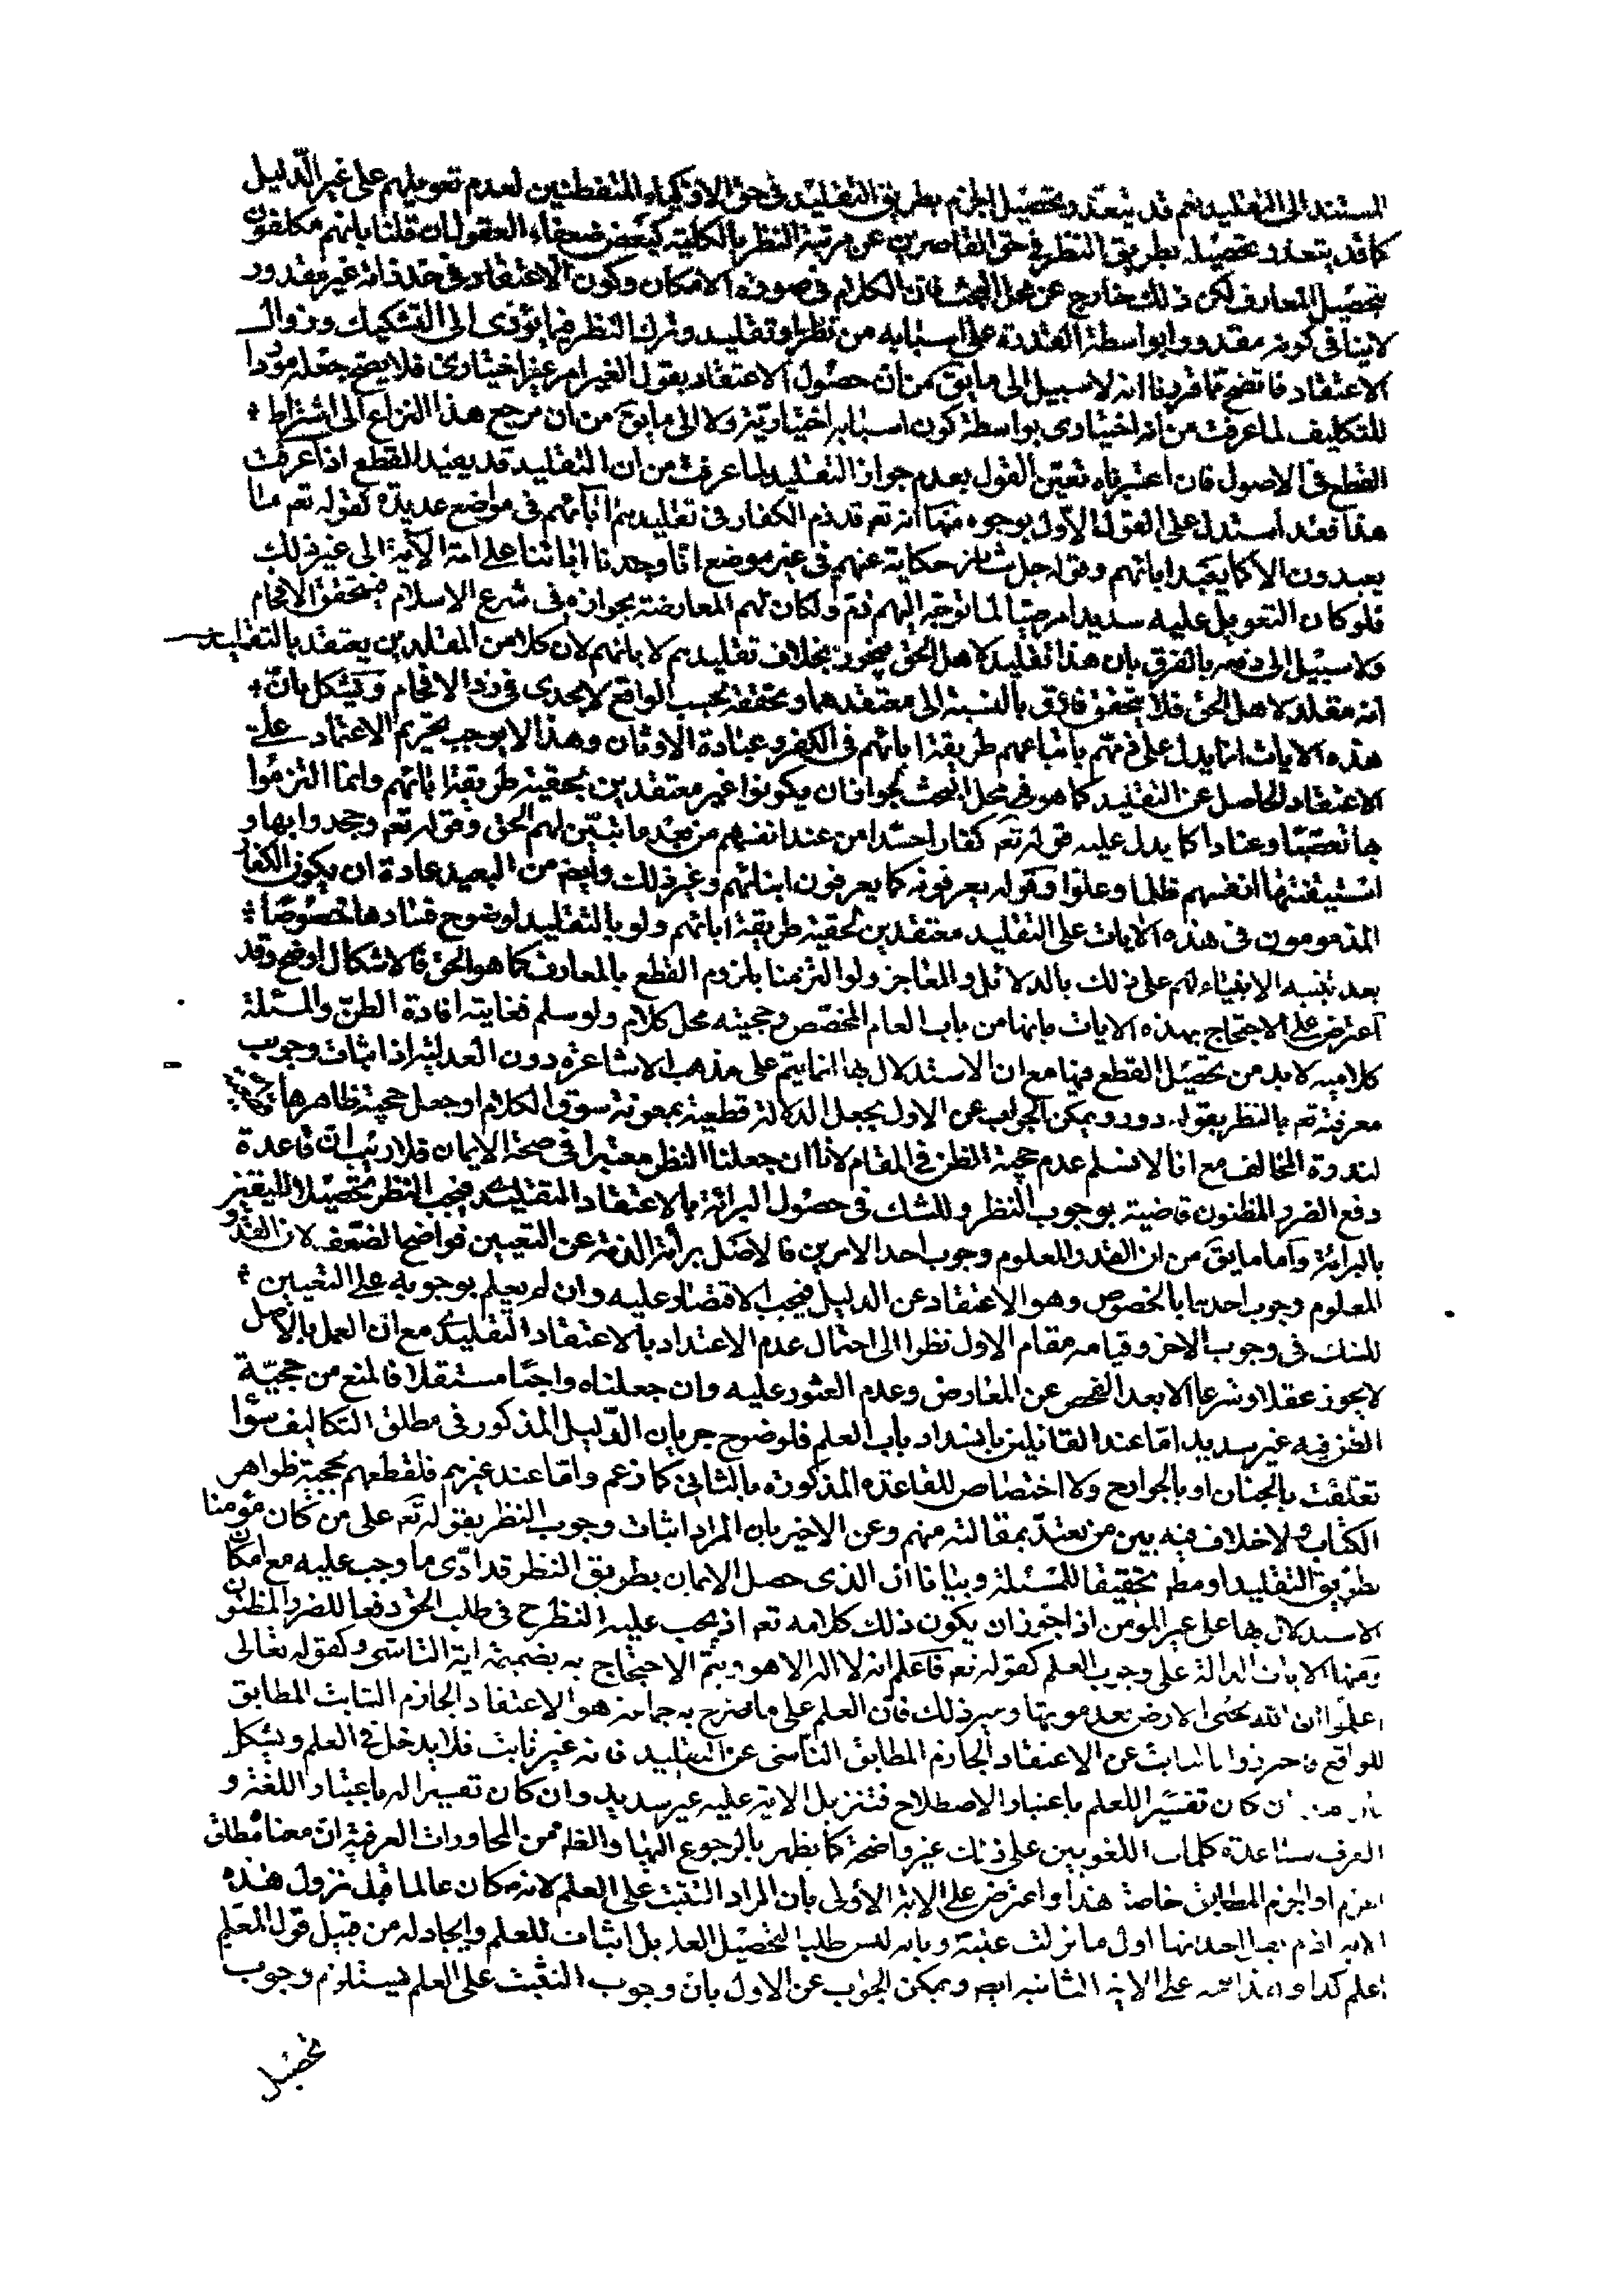 المستند الى التقليد نعم قد يتعذر تحصيل الجزم بطريق التقليد فى حق الاذكياء المتفطنين لعدم تعويلهم على غير الدليل
كما قد يتعذر تحصيله بطريق النظر فى حق القاصرين عن مرتبة النظر بالكلية كبعض ضعفاء العقول ان قلنا بانهم مكلفون
بتحصيل المعارف لكن ذلك خارج عن محل البحث فان الكلام فى صورة الامكان وكون الاعتقاد فى حد ذاته غير مقدور
لا ينافى كونه مقدورا بواسطة القدرة على اسبابه من نظر او تقليد وترك النظر فيما يؤدى الى التشكيك وزوال
الاعتقاد فاتضح مما قررنا انه لا سبيل الى ما يق من ان حصول الاعتقاد بقول الغير امر غير اختيارى فلا يصح جعله موردا
للتكليف لما عرفت من انه اختيارى بواسطة كون اسبابه اختيارية ولا الى ما يق من ان مرجع هذا النزاع الى اشتراط
القطع فى الاصول فان اعتبرناه تعين القول بعدم جواز التقليد لما عرفت من ان التقليد قد يفيد القطع اذا عرفت
هذا فقد استدل على القول الاول بوجوه منها انه تعم قد ذم الكفار فى تقليدهم اباءهم فى مواضع عديدة كقوله تعم ما
يعبدون الا كما يعبد اباؤهم وقوله جل شانه حكاية عنهم فى غير موضع انا وجدنا اباءنا على امة الآية الى غير ذلك
فلو كان التعويل عليه سديدا مرضيا لما توجه اليهم ذم ولكان لهم المعارضة بجوازه فى شرع الاسلام فيتحقق الافحام
ولا سبيل الى دفعه بالفرق بان هذا تقليد لاهل الحق فيجوز بخلاف تقليدهم لابائهم لان كلا من المقلدين يعتقد بالتقليد
انه مقلد لاهل الحق فلا يتحقق فارق بالنسبة الى معتقدهما وتحققه بحسب الواقع لا يجدى فى رد الافحام ويشكل بان
هذه الايات انما يدل على ذمهم باتباعهم طريقة ابائهم فى الكفر وعبادة الاوثان وهذا لا يوجب تحريم الاعتماد على
الاعتقاد الحاصل عن التقليد كما هو فى محل البحث لجواز ان يكونوا غير معتقدين بحقية طريقة ابائهم وانما التزموا
بها تعصبا وعنادا كما يدل عليه قوله تعم كفارا حسدا من عند انفسهم من بعد ما تبين لهم الحق وقوله تعم وجحدوا بها و
استيقنتها انفسهم ظلما وعلوا وقوله يعرفونه كما يعرفون ابنائهم وغير ذلك وايضم من البعيد عادة ان يكون الكفار
المذمومون فى هذه الايات على التقليد معتقدين لحقية طريقة ابائهم ولو بالتقليد لوضوح فسادها خصوصا
بعد تنبيه الانبياء لهم على ذلك بالدلائل والمعاجز ولو التزمنا بلزوم القطع بالمعارف كما هو الحق فالاشكال اوضح وقد
اعترض على الاحتجاج بهذه الايات بانها من باب العام المخصص وحجيته محل كلام ولو سلم فغايته افادة الظن والمسئلة
كلامية لابد من تحصيل القطع فيها مع ان الاستدلال بها انما يتم على مذهب الاشاعرة دون العدلية اذ اثبات وجوب
معرفته تعم بالنظر بقوله دور ويمكن الجواب عن الاول بجعل الدلالة قطعية بمعونة سوق الكلام او جعل حجية ظاهرها
لندرة المخالف مع انا لا نسلم عدم حجية الظن فى المقام لانا ان جعلنا النظر معتبرا فى صحة الايمان فلا ريب ان قاعدة
دفع الضرر المظنون قاضية بوجوب النظر وللشك فى حصول البرائة بالاعتقاد التقليدى فيجب النظر تحصيلا لليقين
بالبرائة واما ما يق من ان القدر المعلوم وجوب احد الامرين فالاصل برائة الذمة عن التعيين فواضح الضعف لان القدر
المعلوم وجوب احدهما بالخصوص وهو الاعتقاد عن الدليل فيجب الاقتصار عليه وان لم يعلم بوجوبه على التعيين
للشك فى وجوب الاخر وقيامه مقام الاول نظرا الى احتمال عدم الاعتداد بالاعتقاد التقليدى مع ان العمل بالاصل
لا يجوز عقلا وشرعا الا بعد الفحص عن المعارض وعدم العثور عليه وان جعلناه واجبا مستقلا فالمنع من حجية
الظن فيه غير سديد اما عند القائلين بانسداد باب العلم فلوضوح جريان الدليل المذكور فى مطلق التكاليف سواء
تعلقت بالجنان او بالجوارح ولا اختصاص للقاعدة المذكورة بالثانى كما زعم واما عند غيرهم فلقطعهم بحجية ظواهر
الكتاب ولا خلاف فيه بين من يعتد بمقالته منهم وعن الاخير بان المراد اثبات وجوب النظر بقوله تعم على من كان مؤمنا
بطريق التقليد او مطم تحقيقا للمسئلة وبيانا ان الذى حصل الايمان بطريق النظر قد ادى ما وجب عليه مع امكان
الاستدلال بها على غير المؤمن اذا جوز ان يكون ذلك كلامه تعم اذ يجب عليه النظر ح فى طلب الحق دفعا للضرر المظنون
ومنها الايات الدالة على وجوب العلم كقوله تعم فاعلم انه لا اله الا هو ويتم الاحتجاج به بضميمة اية التاسى وكقوله تعالى
اعلموا ان الله يحيى الارض بعد موتها وغير ذلك فان العلم على ما صرح به جماعة هو الاعتقاد الجازم الثابت المطابق
للواقع واحترزوا بالثابت عن الاعتقاد الجازم المطابق الناشى عن التقليد فانه غير ثابت فلا يدخل فى العلم ويشكل
بان هذا ان كان تفسيرا للعلم باعتبار الاصطلاح فتنزيل الاية عليه غير سديد وان كان تفسيرا له باعتبار اللغة و
العرف فمساعدة كلمات اللغويين على ذلك غير واضحة كما يظهر بالرجوع اليها والظم من المحاورات العرفية ان معناه مطلق
الجزم او الجزم المطابق خاصة هذا واعترض على الاية الاولى بان المراد التثبت على العلم لانه كان عالما قبل نزول هذه
الاية اذ لم احد انها اول ما نزلت عليه وبانه ليس طلبا لتحصيل العلم بل اثبات للعلم وايجاد له من قبيل قول المعلم
اعلم كذا وهذا على الاية الثانية ايضم ويمكن الجواب عن الاول بان وجوب التثبت على العلم يستلزم وجوب
تحصيل